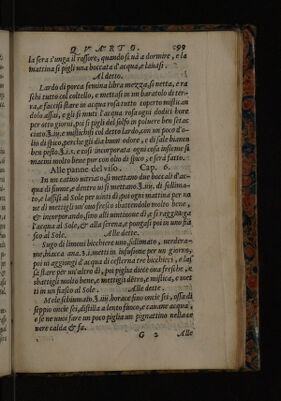 QVARTO. 99
la sera s'unga il rossore, quando si uà a dormire, e la
mattina si pigli una boccata d'acqua, e lauasi.
Al detto.
Lardo di porca femina libra mezza, si netta, e ra
schi tutto col coltello, e metasi in un baratolo di ter-
ra, e faccisi stare in acqua rosa tutto coperto mistican
dolo assai, e gli si muti l'acqua rosa ogni dodici hore
per otto giorni, poi si pigli del solfo in poluere ben seta
ciato ℥.iiij. e mistichisi col detto lardo, con un poco d'o-
lio di spico, perche gli dia buon odore, e di sale bianco
ben pisto ℥.i. e così incorporata ogni cosa insieme si
macini molto bene pur con olio di spico, e serà fatto.
Alle panne del viso. Cap. 6.
In un catino uitriato, si mettano due boccali d'ac-
qua di fiume, e dentro ui si mettano ℥.iiij. di sollima-
to, e lassisi al Sole per uinti dì, poi ogni mattina per no
ue dì mettigli un'ouo fresco sbattendolo molto bene,
& incorporando, sino alli uintinoue dì, e si raggiunga
l'acqua al Sole, & alla serena, e pongasi poi in uno fia
sco al Sole. Alle dette.
Sugo di limoni bicchiere uno, solimato, uerdera-
me, biacca ana ℥.i. metti in infusione per un giorno,
poi ui aggiungi d'acqua di cisterna tre bicchieri, e las-
sa stare per un'altro dì, poi piglia dieci oua fresche, e
sbattigli molto bene, e mettigli dentro, e mistica, e met
ti in un fiasco al Sole. Alle dette.
Mele schiumato ℥.iiij. borace fino oncie sei, ossa di
seppia oncie sei, distilla a lento fuoco, e cauane acqua,
e se ne uuoi fare un poco piglia un pignattino nella ce
nere calda & fa.
G 2 Alle